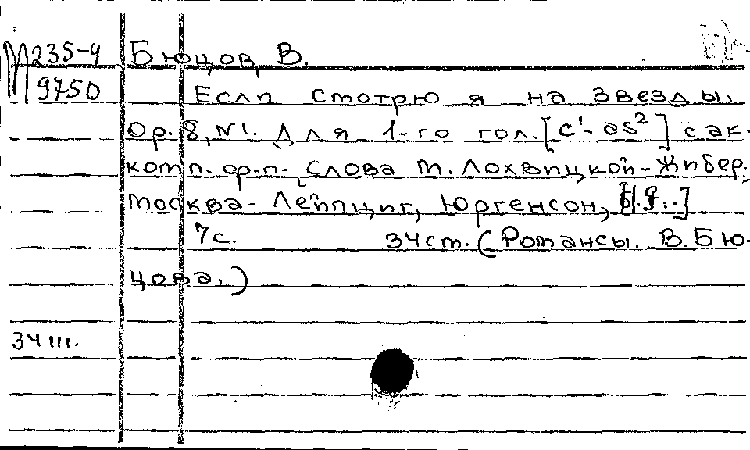 М 235-4 Бюцов, В.
9750 Если смотрю я на звезды.
Ор. 8, N1. Для 1-го гол. [c¹-as²] с ак-
комп. ф-п. Слова М. Лохвицкой-Жибер.
Москва-Лейпциг, Юргенсон,
7с. 34ст. (Романсы В. Бю-
цова.)
34 III.